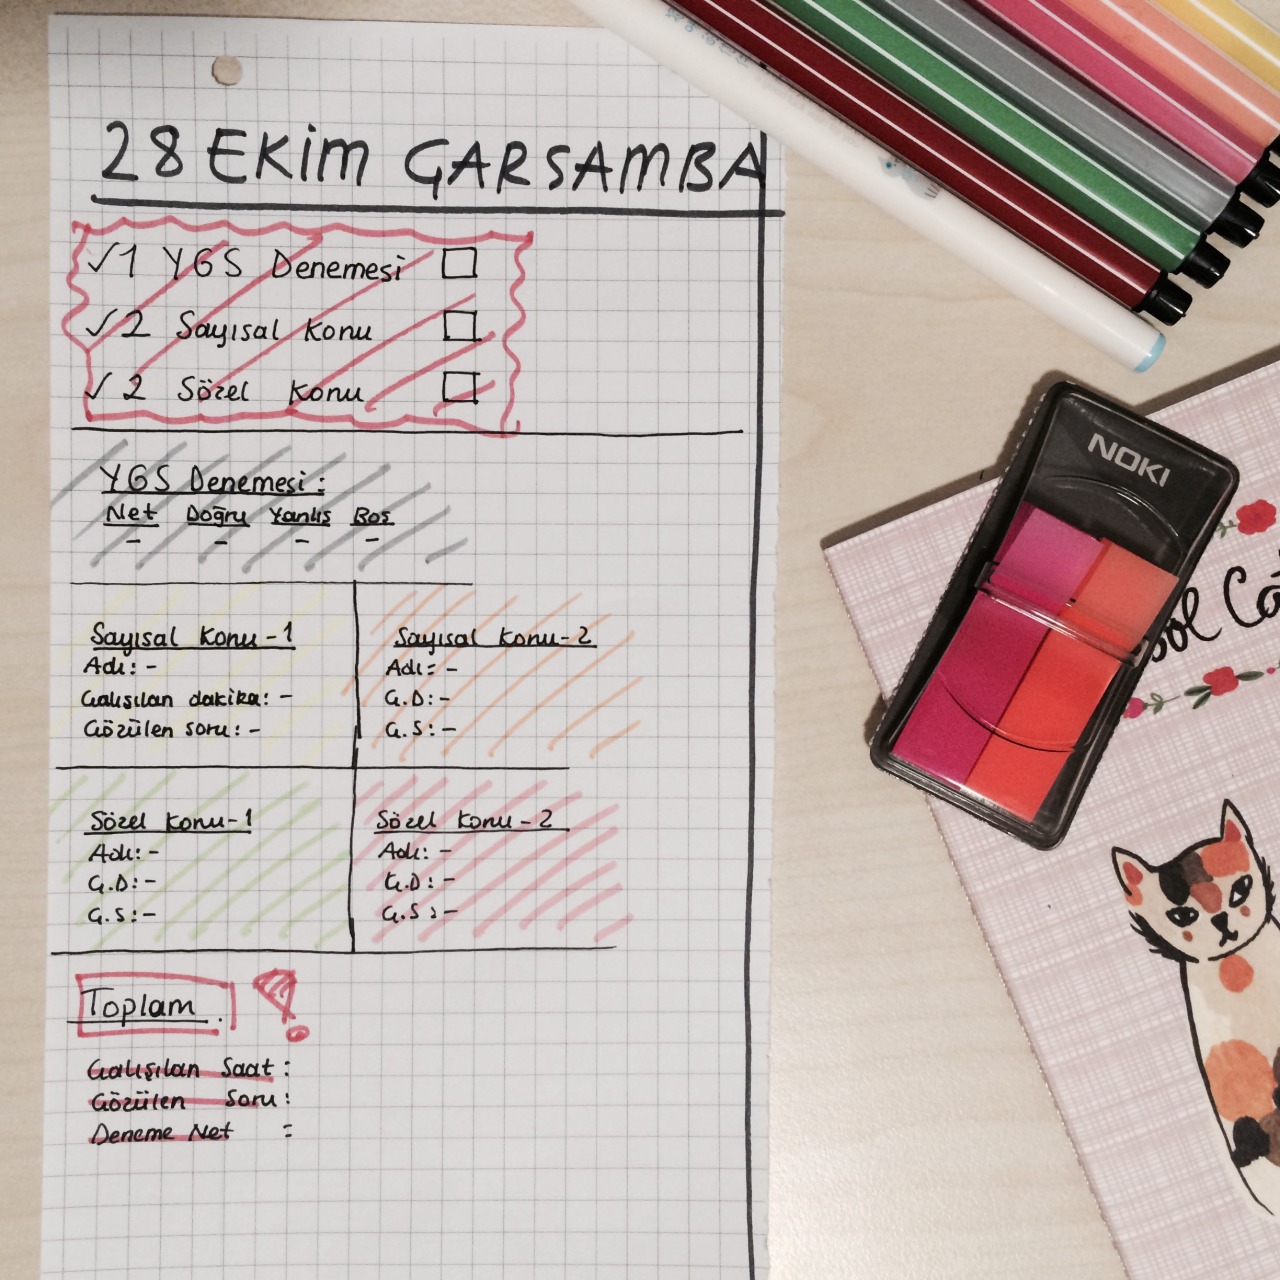 28 EKİM ÇARŞAMBA
✓ 1 YGS Denemesi
✓ 2 Sayısal Konu
✓ 2 Sözel Konu
YGS Denemesi :
Net Doğru Yanlış Boş
- - - -
Sayısal Konu-1
Adı: -
Çalışılan dakika: -
Çözülen soru: -
Sayısal Konu-2
Adı: -
Ç.D: -
Ç.S: -
Sözel Konu-1
Adı: -
Ç.D: -
Ç.S: -
Sözel Konu-2
Adı: -
Ç.D: -
Ç.S: -
Toplam.
Çalışılan Saat :
Çözülen Soru :
Deneme Net :
NOKI